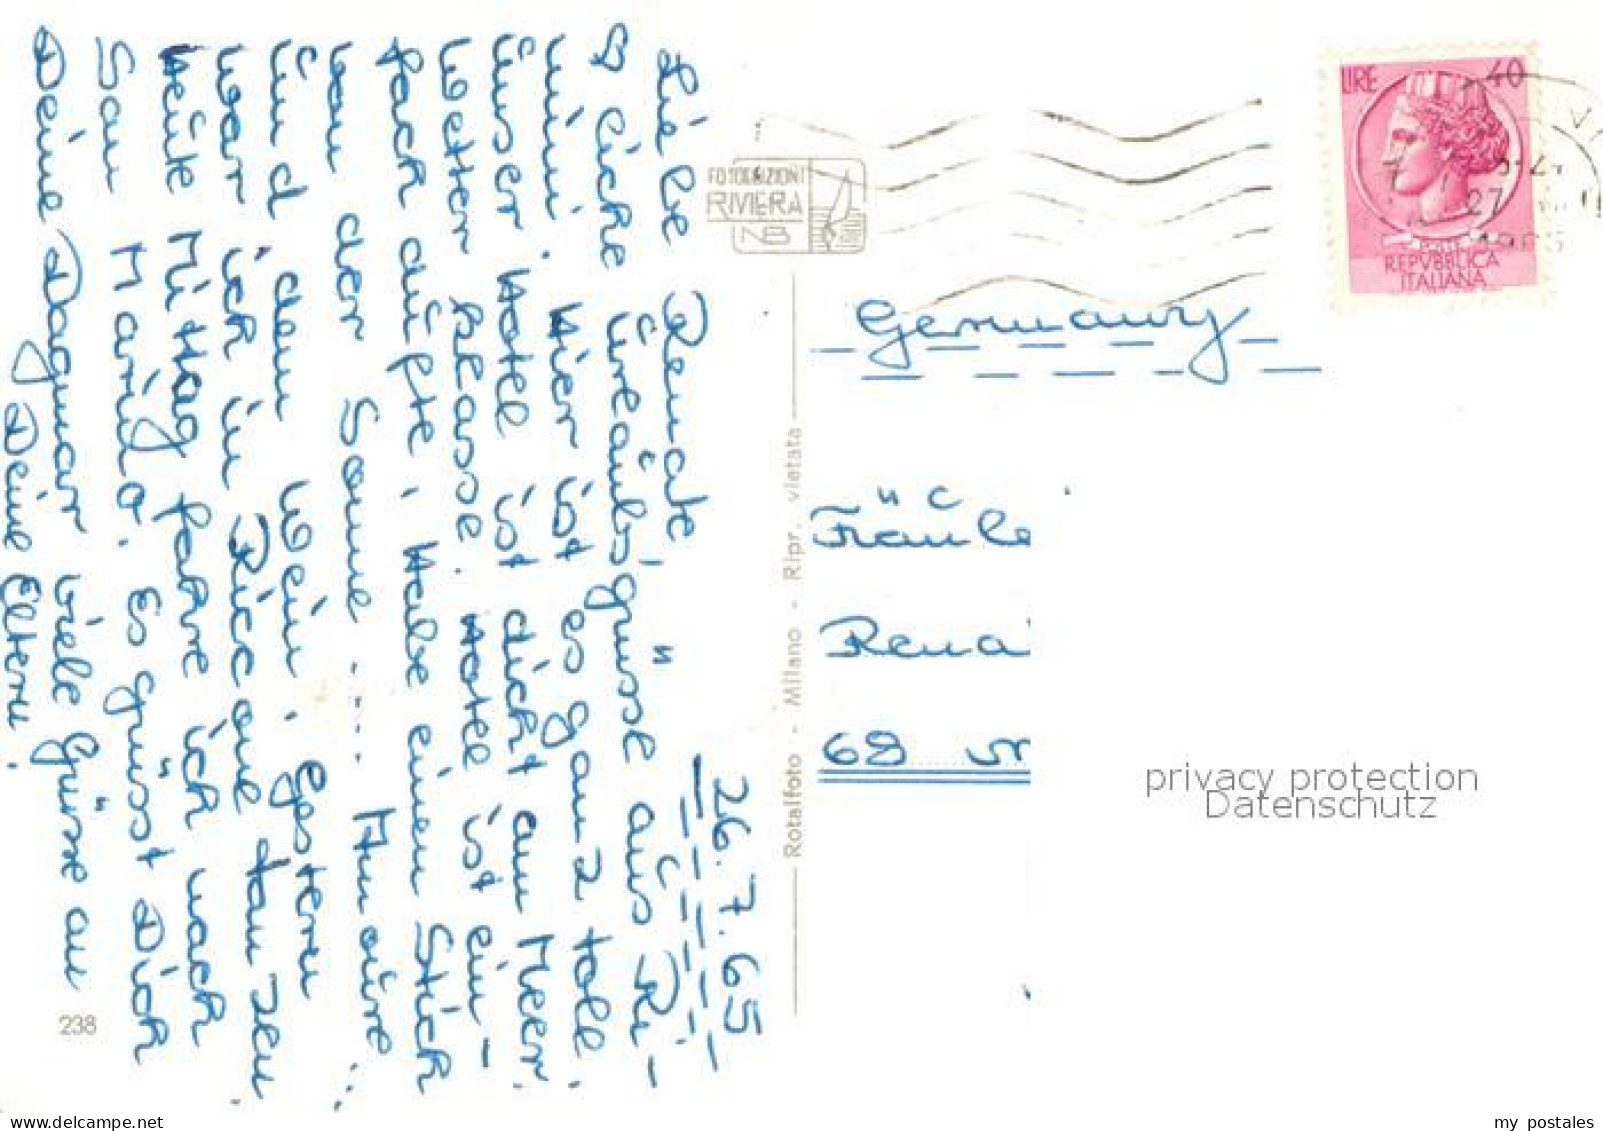 26.7.65
Liebe Renate,
♡liche Urlaubsgrüsse aus Ri-
mini. Hier ist es ganz toll.
Unser Hotel ist dicht am Meer.
Wetter Klasse. Hotel ist ein-
fach dufte. Habe einen Stich
von der Sonne .... Amore...
Und dem Wein. Gestern
war ich in Riccione tanzen.
Heute Mittag fahre ich nach
San Marino. Es grüsst Dich
Deine Dagmar viele Grüsse an
Deine Eltern.
238
FOTOEDIZIONI
RIVIERA
NB
Rotalfoto - Milano - Ripr. vietata
LIRE 40
POSTE
REPVBBLICA
ITALIANA
27
Germany
Fräule
Rena
68 M
privacy protection
Datenschutz
www.delcampe.net
my_postales